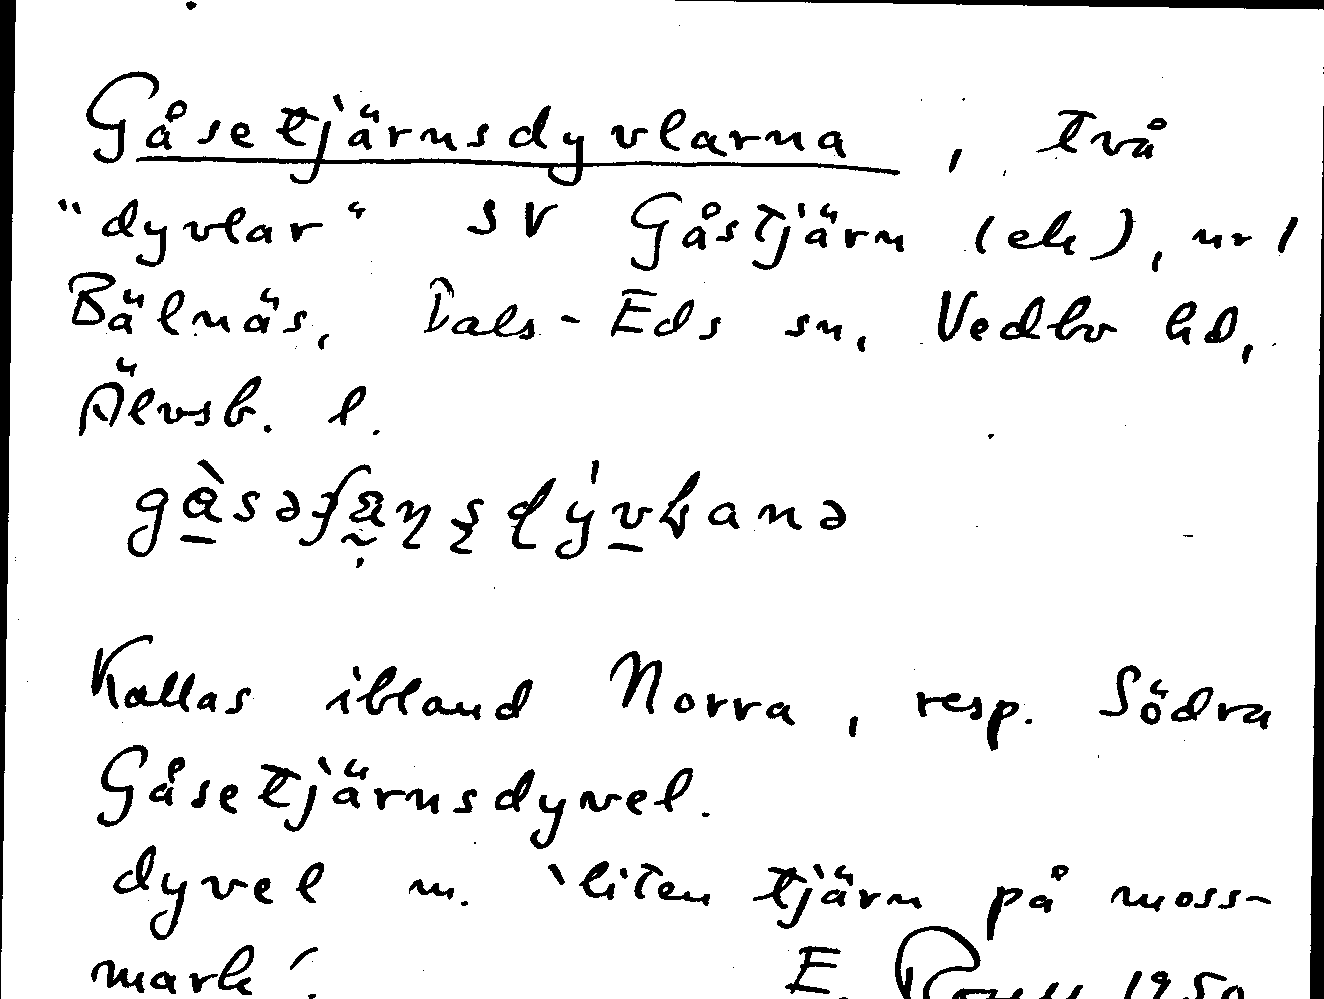 Gåsetjärnsdyvlarna, två
"dyvlar" SV Gåstjärn (ek), nr 1
Bälnäs, Dals-Eds sn, Vedbo hd,
Älvsb. l.
Kallas ibland Norra, resp. Södra
Gåsetjärnsdyvel.
dyvel m. 'liten tjärn på moss-
mark'. E. 1950